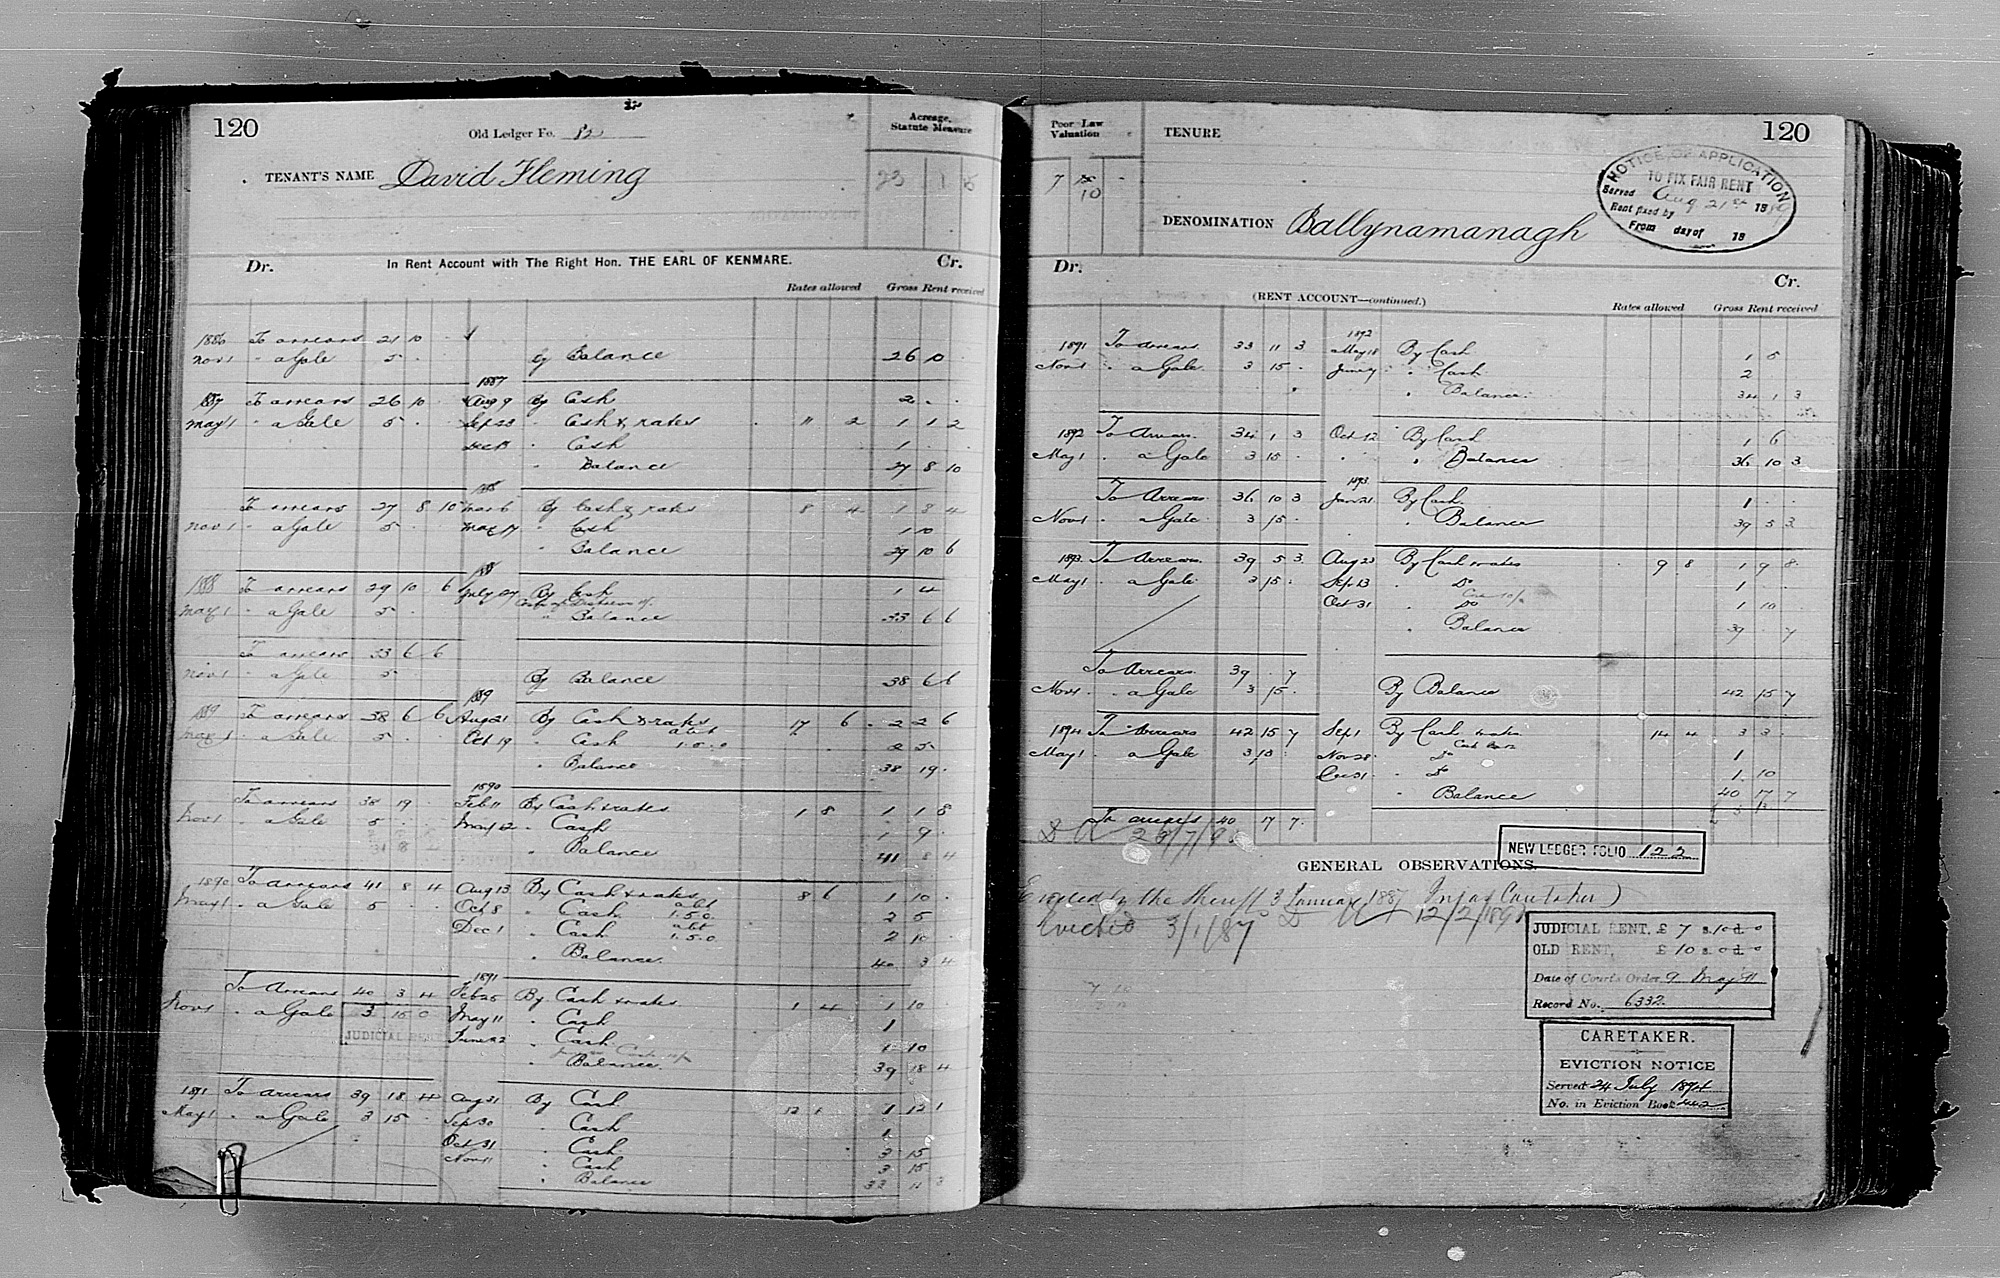 120
Old Ledger Fo. 82
Acreage, Statute Measure
TENANT'S NAME David Fleming
23 1 8
Dr. In Rent Account with The Right Hon. THE EARL OF KENMARE. Cr.
Rates allowed Gross Rent received
1886 To arrears 21 10 .
Nov 1 " a Gale 5 . By Balance 26 10 .
1887
1887 To arrears 26 10 . Aug 9 By Cash 2 . .
May 1 " a Gale 5 . . Sep 23 " Cash & rates " 2 1 1 2
" Cash 1 . .
" Balance 27 8 10
1888
To arrears 27 8 10 Mar 6 By Cash & rates 8 4 1 8 4
Nov 1 " a Gale 5 . May 17 " Cash 1 10
" Balance 29 10 6
1888
1888 To arrears 29 10 6 July 27 By Cash 1 4
May 1 " a Gale 5 . " Balance 33 6 6
To arrears 33 6 6
Nov 1 " a Gale 5 . By Balance 38 6 6
1889
1889 To arrears 38 6 6 Aug 21 By Cash & rates 17 6 2 2 6
May 1 " a Gale 5 . . Oct 19 " Cash abt 1.5.0 2 5
" Balance 38 19 .
1890
To arrears 38 19 . Feb 11 By Cash & rates 1 8 1 1 8
Nov 1 " a Gale 5 . . May 12 " Cash 1 9 .
" Balance 41 8 4
1890 To arrears 41 8 4 Aug 13 By Cash & rates 8 6 1 10 .
May 1 " a Gale 5 . . Oct 8 " Cash abt 1.5.0 2 5
Dec 1 " Cash abt 1.5.0 2 10
" Balance 40 3 4
1891
To Arrears 40 3 4 Feb 25 By Cash & rates 1 4 1 10
Nov 1 " a Gale 3 15 0 May 11 " Cash 1
JUDICIAL June 22 " Cash 1 10
" Balance 39 18 4
1891 To arrears 39 18 4 Aug 31 By Cash 12 1 1 12 1
May 1 " a Gale 3 15 . Sep 30 " Cash 1
Oct 31 " Cash 3 15
Nov 11 " Cash 3 15
" Balance 33 11 3
Poor Law Valuation
TENURE
120
7 10
NOTICE OF APPLICATION
TO FIX FAIR RENT
Served Aug 21st 18
Rent fixed by
From day of 18
DENOMINATION Ballynamanagh
Dr. Cr.
(RENT ACCOUNT—continued.) Rates allowed Gross Rent received
1892
1891 To Arrears 33 11 3 May 18 By Cash 1 5
Nov 1 " a Gale 3 15 . June 7 " Cash 2
" Balance 34 1 3
1892 To Arrears 34 1 3 Oct 12 By Cash 1 6
May 1 " a Gale 3 15 . " Balance 36 10 3
1893
To Arrears 36 10 3 Jan 21 By Cash 1 . .
Nov 1 " a Gale 3 15 . " Balance 39 5 3
1893 To Arrears 39 5 3 Aug 23 By Cash & rates 9 8 1 9 8
May 1 " a Gale 3 15 . Sep 13 " Do 1 . .
Oct 31 " Do 1 10
" Balance 39 . 7
To Arrears 39 . 7
Nov 1 " a Gale 3 15 . By Balance 42 15 7
1894 To Arrears 42 15 7 Sep 1 By Cash rates 14 4 3 3 .
May 1 " a Gale 3 15 . Nov 28 " Do 1
Dec 31 " Do 1 10
" Balance 40 17 7
To arrears 40 17 7
NEW LEDGER FOLIO 122
GENERAL OBSERVATIONS.
Evicted by the Sheriff 3 January 1887
Evicted 3/1/87 12/2/189
JUDICIAL RENT, £ 7 s. 10 d. 0
OLD RENT, £ 10 s. 0 d. 0
Date of Court's Order 9 May 91
Record No. 6332
CARETAKER.
EVICTION NOTICE
Served 24 July 1894
No. in Eviction Book